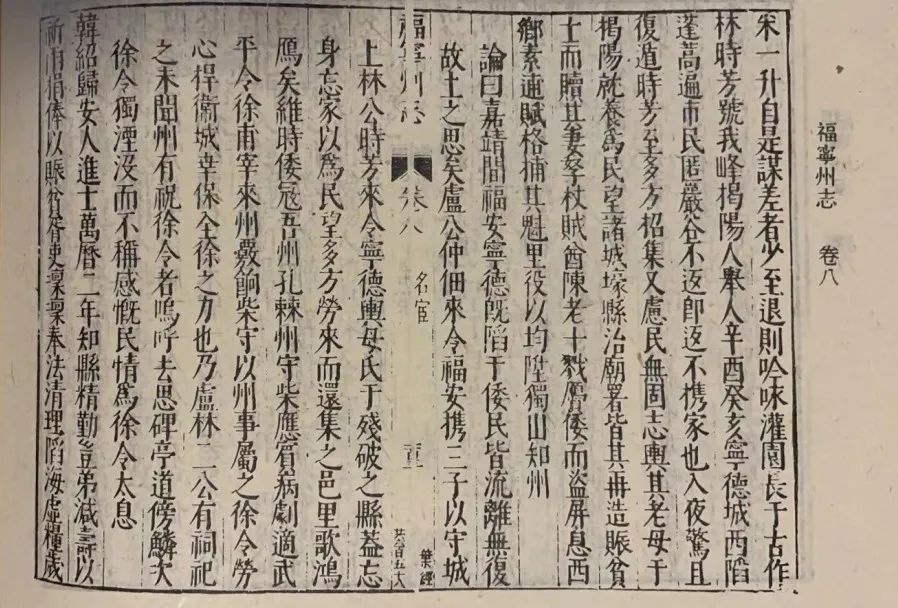 福寧州志　卷八
宋一升自是謀差者少至退則吟咏灌園長于古作
林時芳號我峰揭陽人舉人辛酉癸亥寧德城西陷
蓬蒿遍市民匿巖谷不返卽返不携家也入夜驚且
復遁時芳至多方招集又慮民無固志輿其老母于
揭陽就養爲民望諸城壕縣治廟署皆其再造賑貧
士而贖其妻孥杖賊酋陳老十戮屬倭而盜屏息西
鄉素逋賦格捕其魁里役以均陞獨山知州
論曰嘉靖間福安寧德旣陷于倭民皆流離無復
故土之思矣盧公仲佃來令福安携三子以守城
福寧州志
卷八
名宦
葉經
上林公時芳來令寧德輿母氏于殘破之縣蓋忘
身忘家以爲民望多方勞來而還集之邑里歌鴻
鴈矣維時倭冦吾州孔棘州守柴應賓病劇適武
平令徐甫宰來州覈餉柴守以州事屬之徐令勞
心桿衛城幸保全徐之力也乃盧林二公有祠祀
之未聞州有祝徐令者嗚呼去思碑亭道傍鱗次
徐令獨湮没而不稱感慨民情爲徐令太息
韓紹歸安人進士萬曆二年知縣精勤豈弟減壽以
祈雨捐俸以賑貧胥吏凛凛奉法清理蹈海虛糧歲